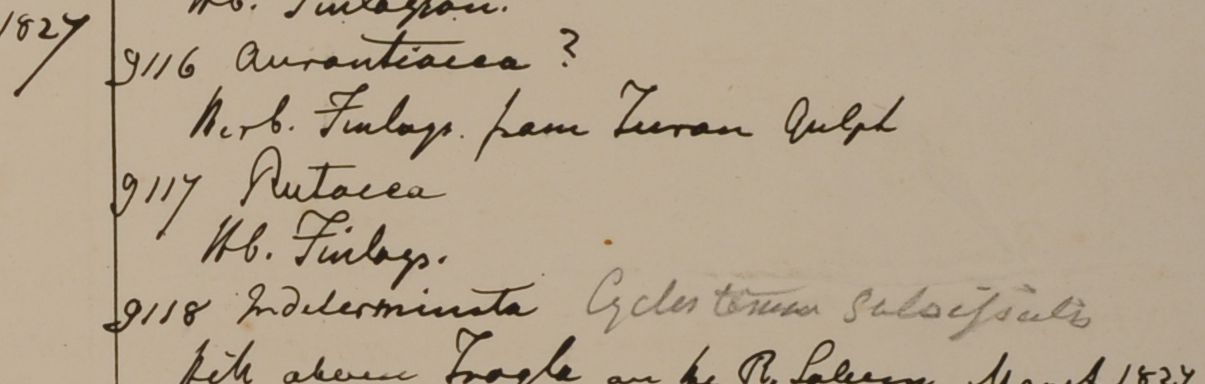 Hb. Finlayson.
1827
9116 Aurantiacea ?
Herb. Finlays. from Turan Gulph
9117 Rutacea
Hb. Finlays.
9118 Indeterminata Cyclostemon
above Trogla on the R. Saluen March 1827